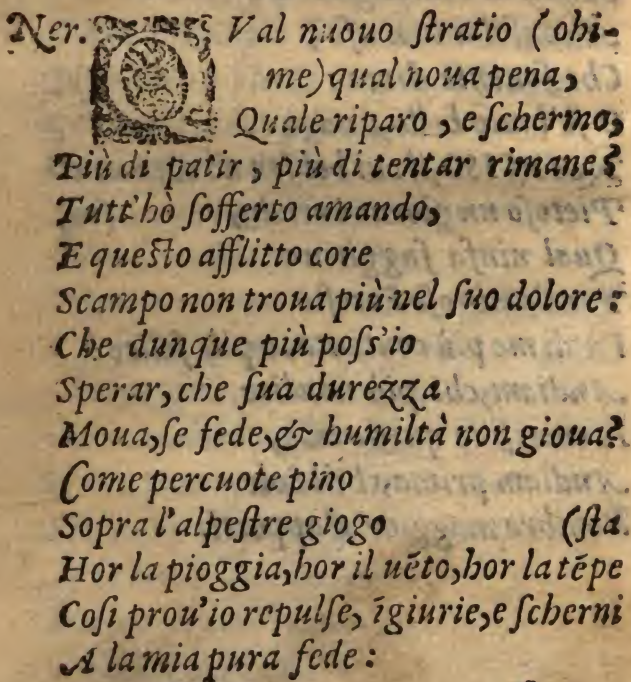 Ner. QVal nuouo ſtratio (ohi-
me) qual noua pena,
Quale riparo, e ſchermo,
Più di patir, più di tentar rimane?
Tutt'hò ſofferto amando,
E queſto afflitto core
Scampo non troua più nel ſuo dolore:
Che dunque più poſs'io
Sperar, che ſua durezza
Moua, ſe fede, & humiltà non gioua?
Come percuote pino
Sopra l'alpeſtre giogo (ſta.
Hor la pioggia, hor il uẽto, hor la tẽpe
Coſi prou'io repulſe, ĩgiurie, e ſcherni
A la mia pura fede: